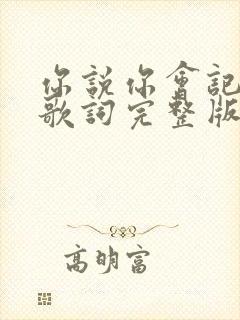 你說你會記
歌詞完整版
高明富